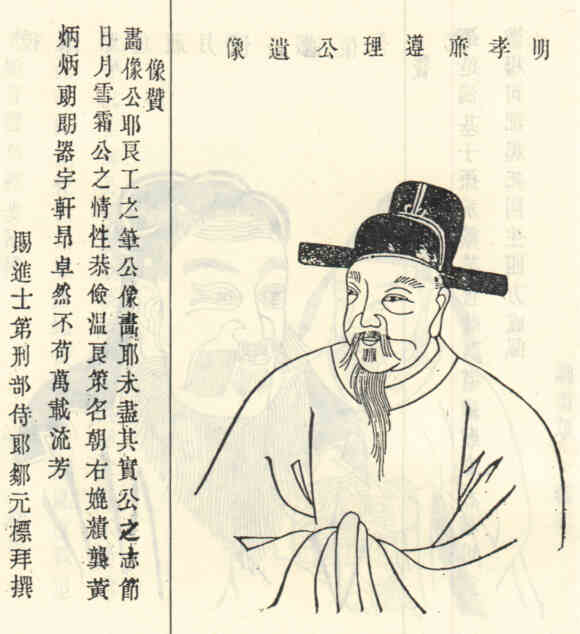 明孝廉遵理公遺像
像贊
畵像公耶良工之筆公像畵耶未盡其實公之志節
日月雪霜公之情性恭儉溫良策名朝右媲績龔黃
炳炳朗朗器宇軒昂卓然不苟萬載流芳
賜進士第刑部侍郎鄒元標拜撰